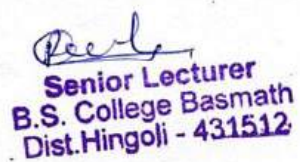 Senior Lecturer
B.S. College Basmath
Dist.Hingoli - 431512